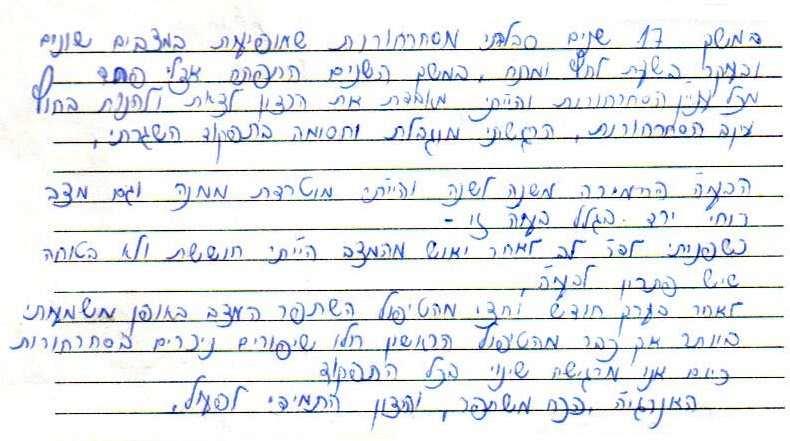 במשך 17 שנים סבלתי מסחרחורות שמופיעות במצבים שונים
ובעקר בשעת לחץ ומתח. במשך השנים התפתח אצלי פחד
מכל ענין הסחרחורות והייתי מאבדת את הרצון לצאת ולהנות בחוץ
עקב הסחרחורות, הרגשתי מוגבלת וחסומה בתפקוד השגרתי.
הבעיה החמירה משנה לשנה והייתי מוטרדת ממנה וגם מצב
רוחי ירד בגלל בעיה זו -
כשפניתי לד״ר לב לאחר יאוש מהמצב הייתי חוששת ולא בטוחה
שיש פתרון לבעיה.
לאחר בערך חודש וחצי מהטיפול השתפר המצב באופן משמעותי
ביותר אך כבר מהטיפול הראשון חלו שיפורים ניכרים בסחרחורות
כיום אני מרגישה שינוי בכל התפקוד
האנרגיה, הכח משתפר, והרצון התמידי לפעול.